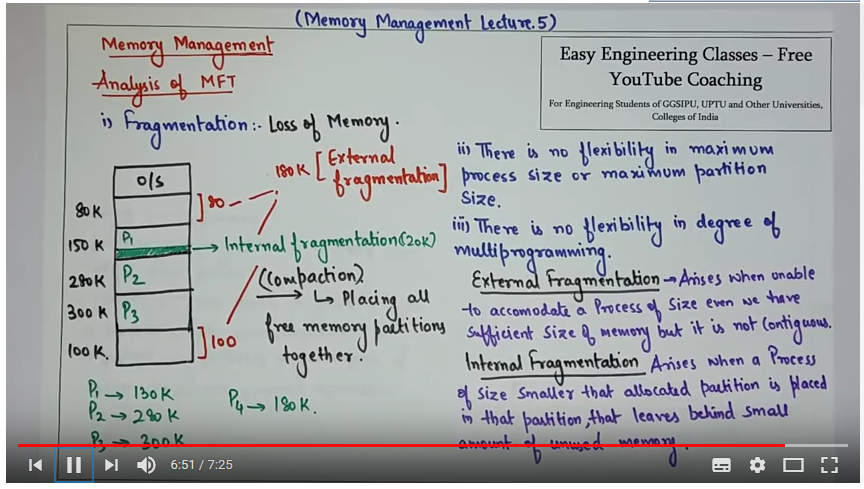 (Memory Management Lecture.5)
Memory Management
Analysis of MFT
i) Fragmentation:- Loss of Memory.
Easy Engineering Classes – Free
YouTube Coaching
For Engineering Students of GGSIPU, UPTU and Other Universities,
Colleges of India
O/S
80K
150 K
P1
280K
P2
300 K
P3
100K.
80
180K [External
fragmentation]
Internal fragmentation(20K)
(Compaction)
Placing all
free memory partitions
together.
100
P1 → 130K
P2 → 280K
P3 → 300K
P4 → 180K.
ii) There is no flexibility in maximum
process size or maximum partition
Size.
iii) There is no flexibility in degree of
multiprogramming.
External Fragmentation → Arises when unable
to accomodate a Process of Size even we have
sufficient Size of memory but it is not Contiguous.
Internal Fragmentation Arises when a Process
of Size Smaller that allocated partition is placed
in that partition, that leaves behind small
amount of unused memory.
6:51 / 7:25